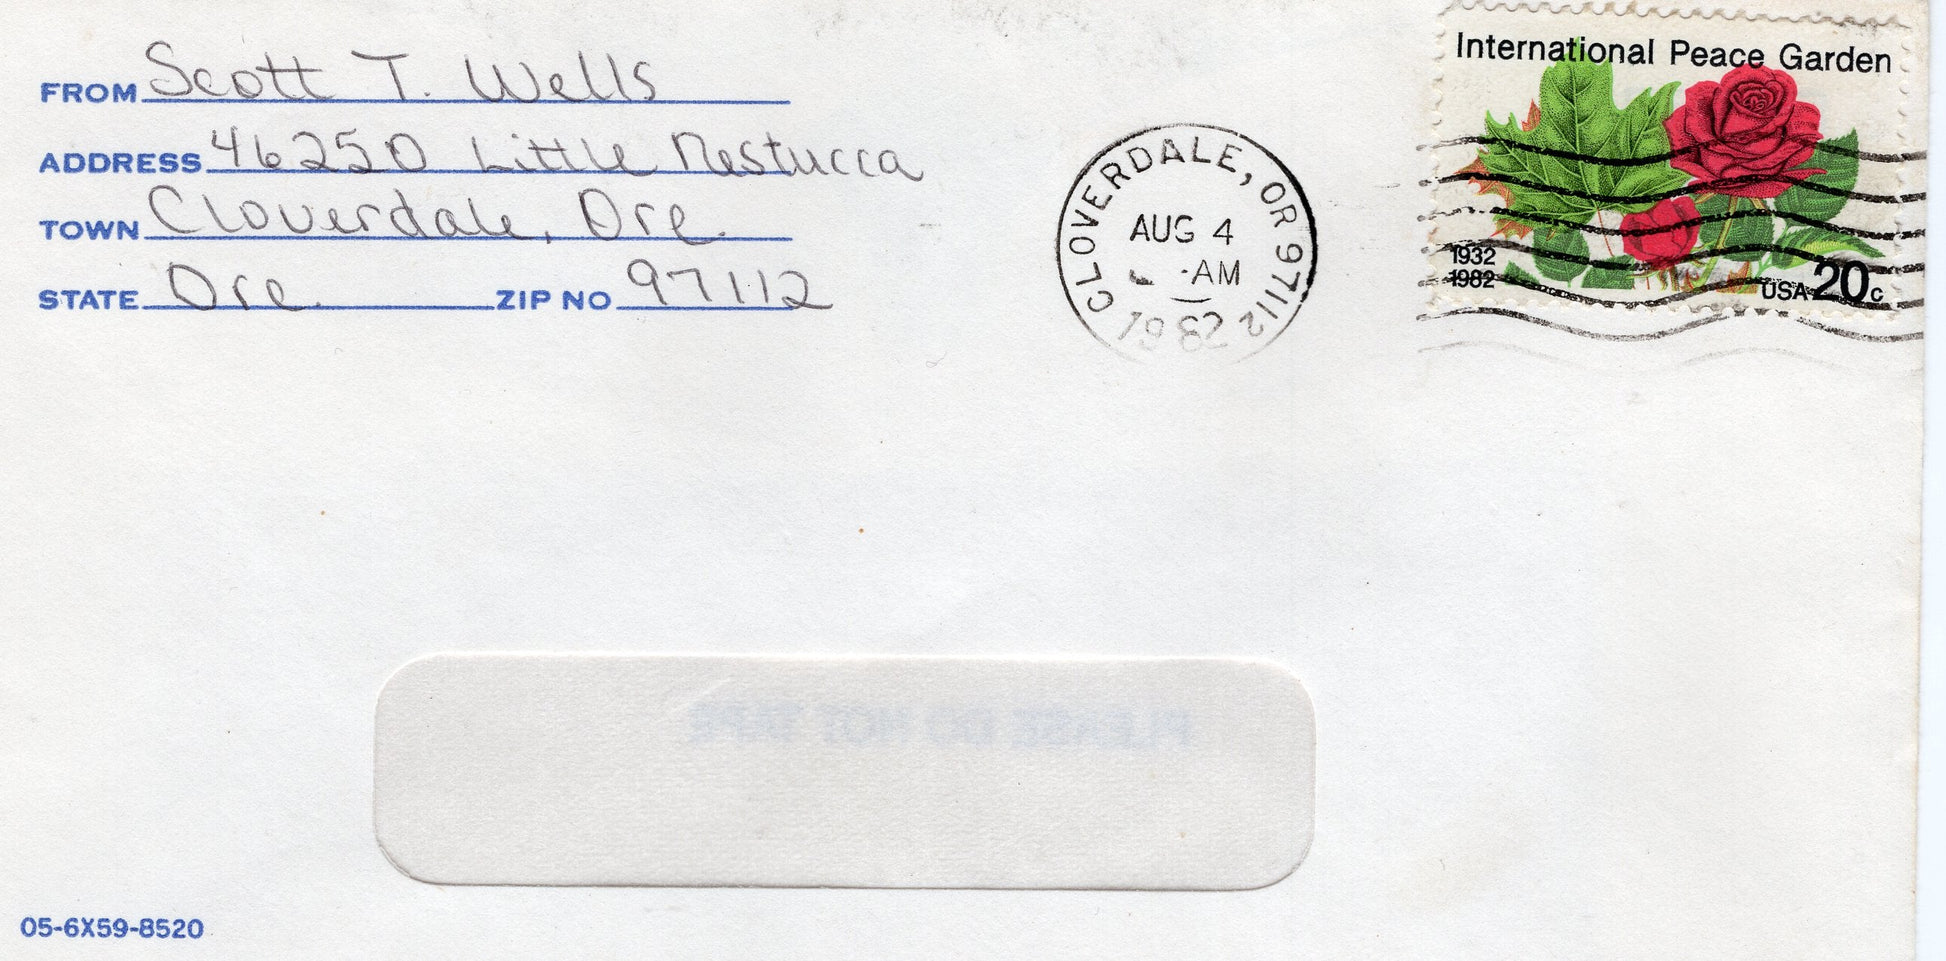 FROM Scott T. Wells
ADDRESS 46250 Little Nestucca
TOWN Cloverdale, Ore.
STATE Ore. ZIP NO 97112
CLOVERDALE, OR 97112
AUG 4
AM
1982
International Peace Garden
1932
1982
USA 20c
PLEASE DO NOT TAPE
05-6X59-8520